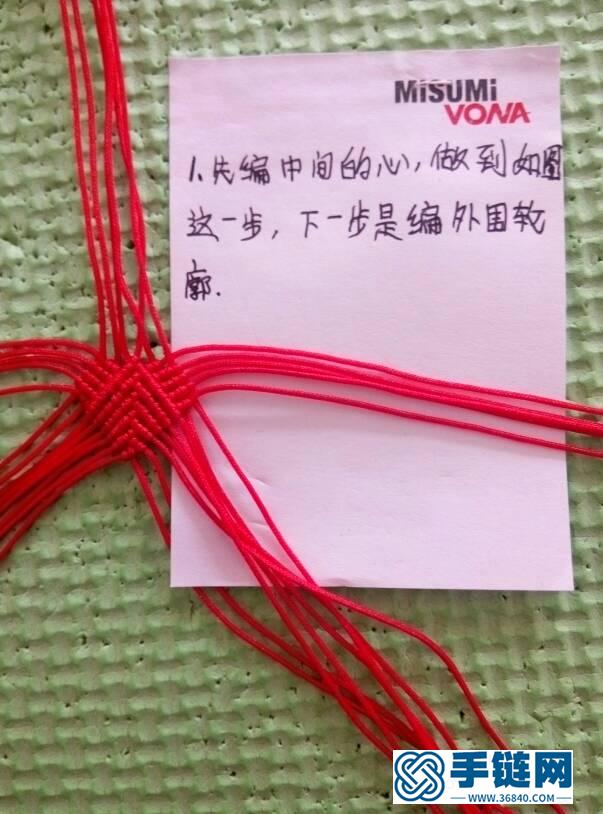 MiSUMi
VONA
1.先编中间的心,做到如图
这一步,下一步是编外围轮
廓.
手链网
WWW.36840.COM